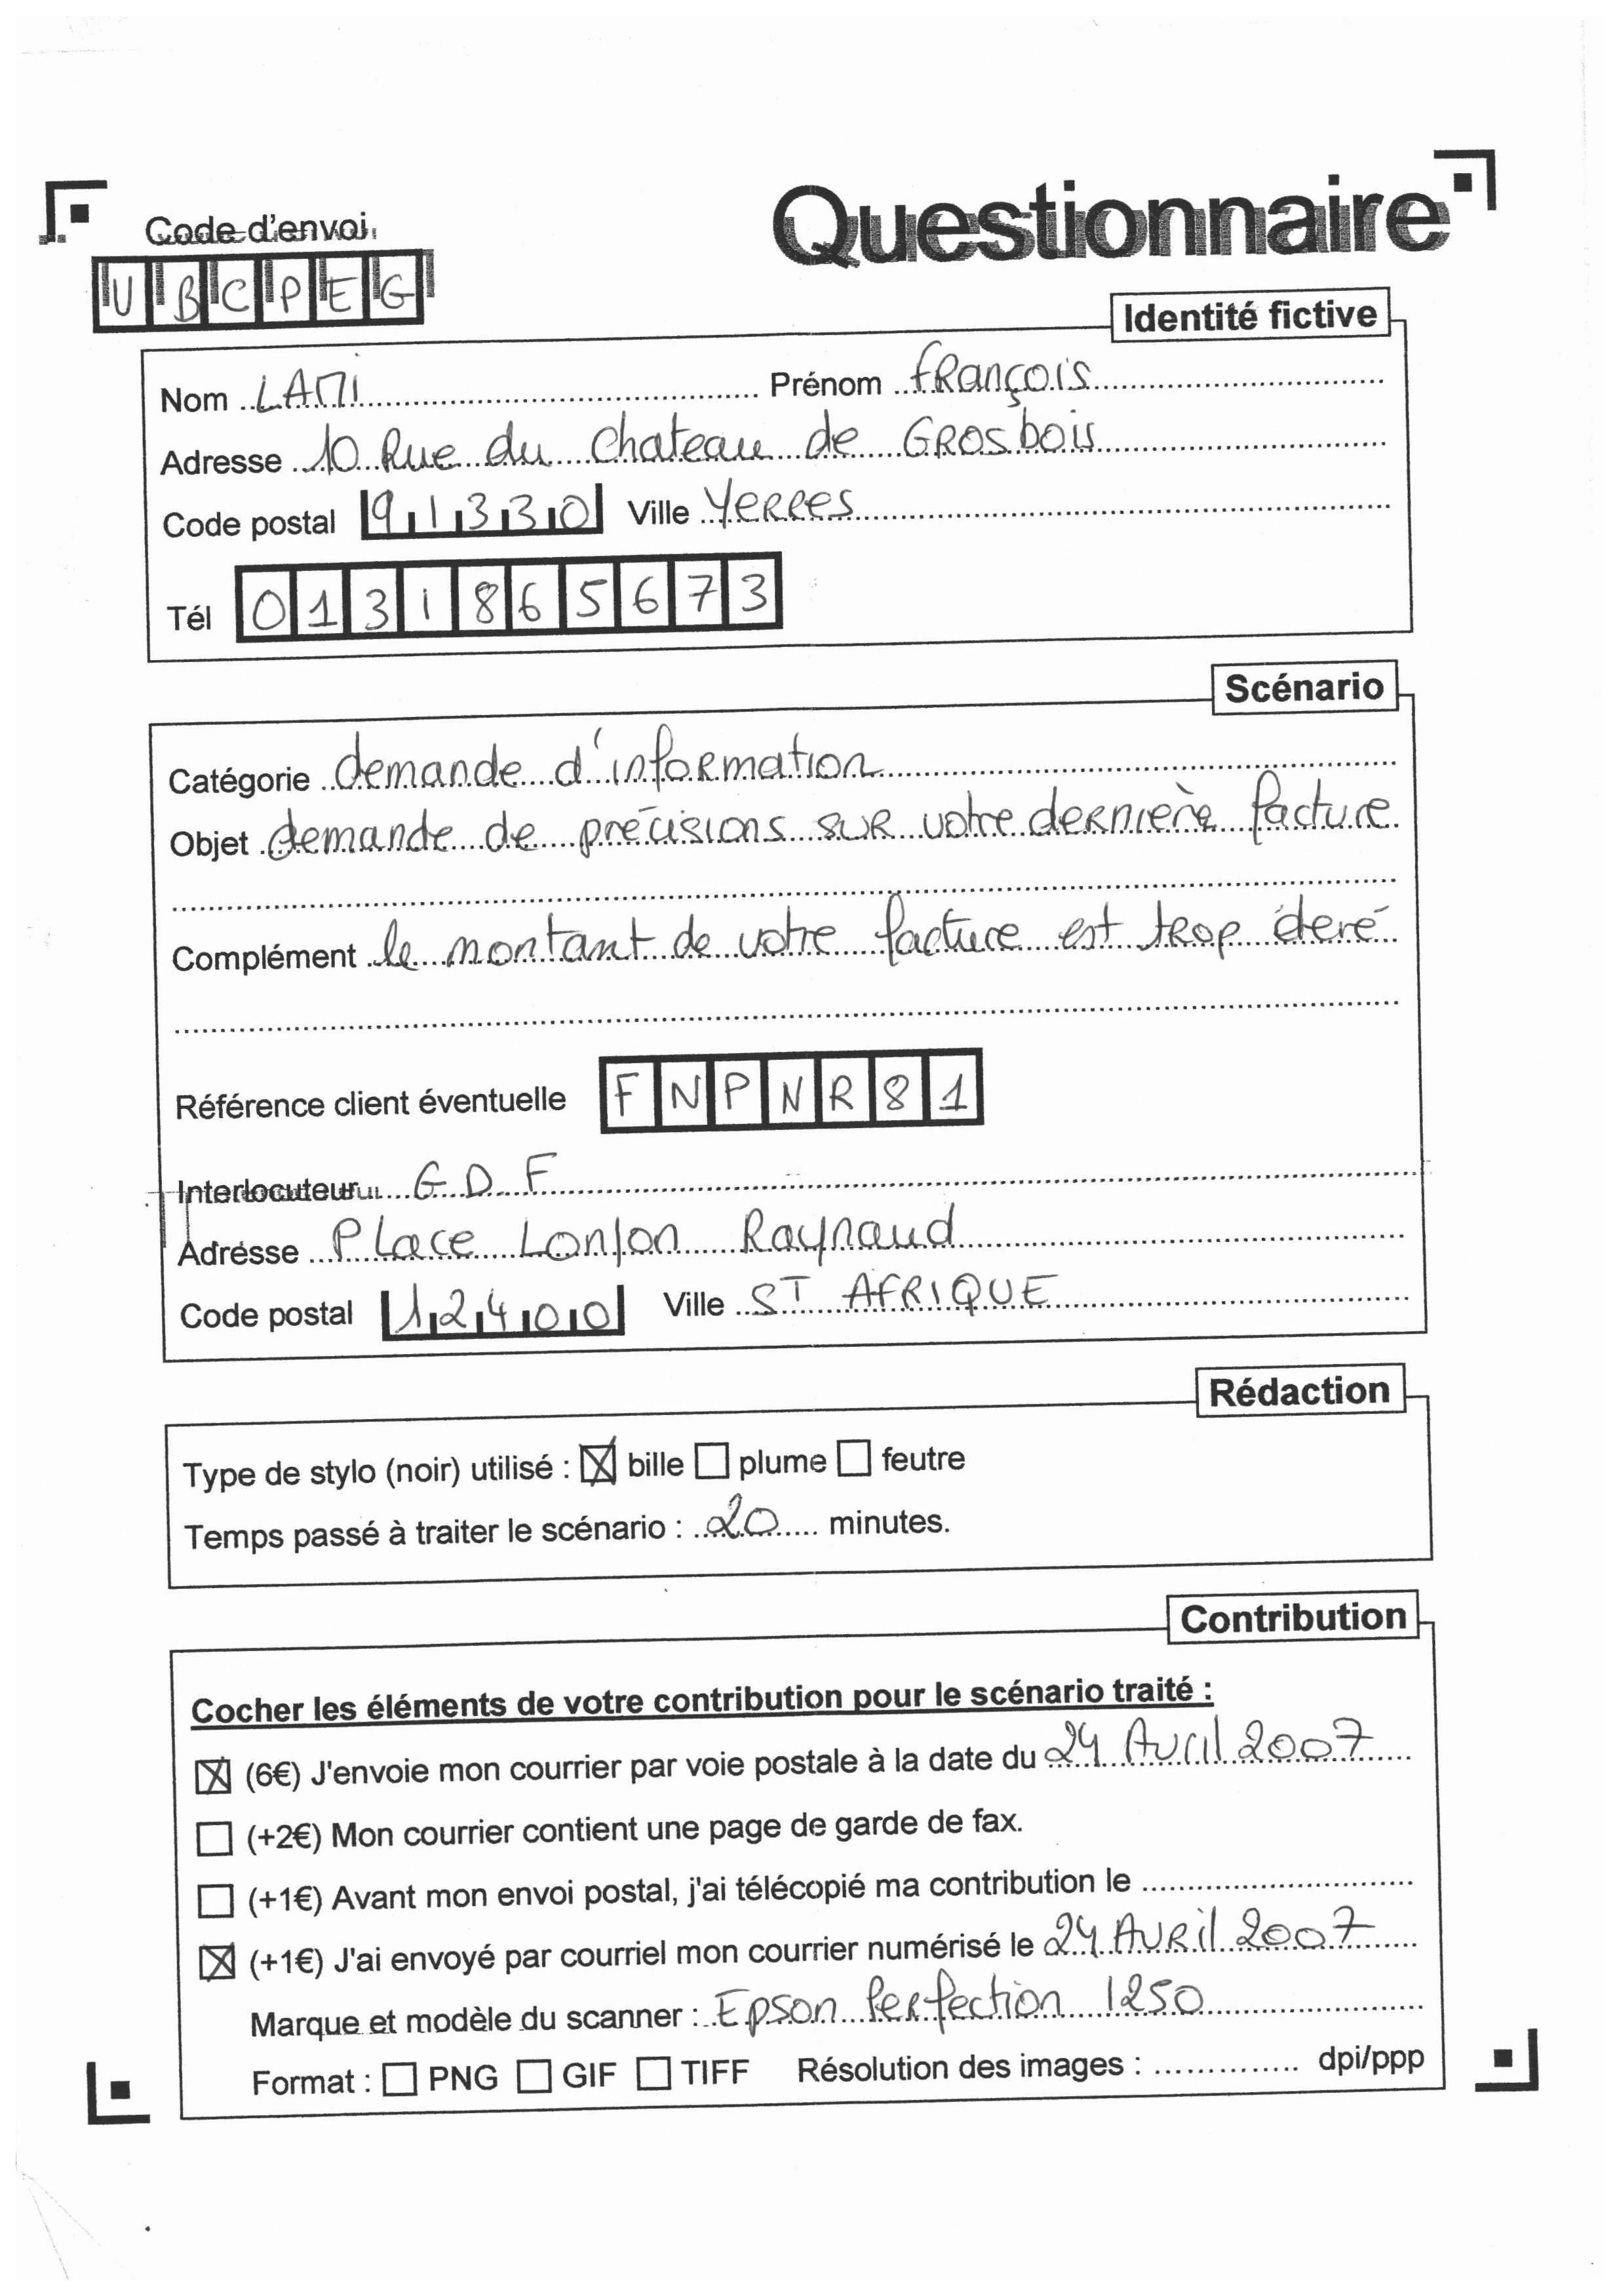 Code d'envoi
UBCPEG
Questionnaire
Identité fictive
Nom LAMI Prénom François
Adresse 10 Rue du Chateau de GROSbois
Code postal 91330 Ville Yerres
Tél 0131865673
Scénario
Catégorie demande d'information
Objet demande de précisions sur votre dernière facture
Complément le montant de votre facture est trop éleré
Référence client éventuelle FNPNR81
Interlocuteur GDF
Adresse Place Lonjon Raynaud
Code postal 12400 Ville ST AFRIQUE
Rédaction
Type de stylo (noir) utilisé : ☒ bille ☐ plume ☐ feutre
Temps passé à traiter le scénario : 20 minutes.
Contribution
Cocher les éléments de votre contribution pour le scénario traité :
☒ (6€) J'envoie mon courrier par voie postale à la date du 24 Avril 2007
☐ (+2€) Mon courrier contient une page de garde de fax.
☐ (+1€) Avant mon envoi postal, j'ai télécopié ma contribution le ..............................
☒ (+1€) J'ai envoyé par courriel mon courrier numérisé le 24 Avril 2007
Marque et modèle du scanner : Epson Perfection 1250
Format : ☐ PNG ☐ GIF ☐ TIFF Résolution des images : ............... dpi/ppp